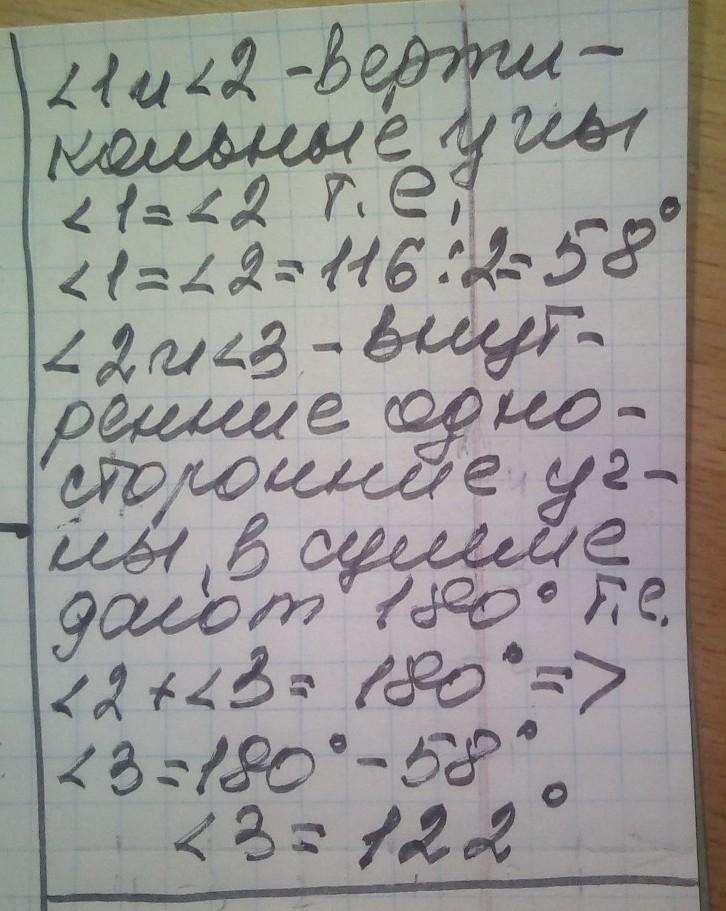 <1 и <2 - верти-
кальные углы
<1 = <2 т.е.
<1 = <2 = 116 : 2 = 58°
<2 и <3 - внут-
ренние одно-
сторонние уг-
лы, в сумме
дают 180° т.е.
<2 + <3 = 180° =>
<3 = 180° - 58°
<3 = 122°